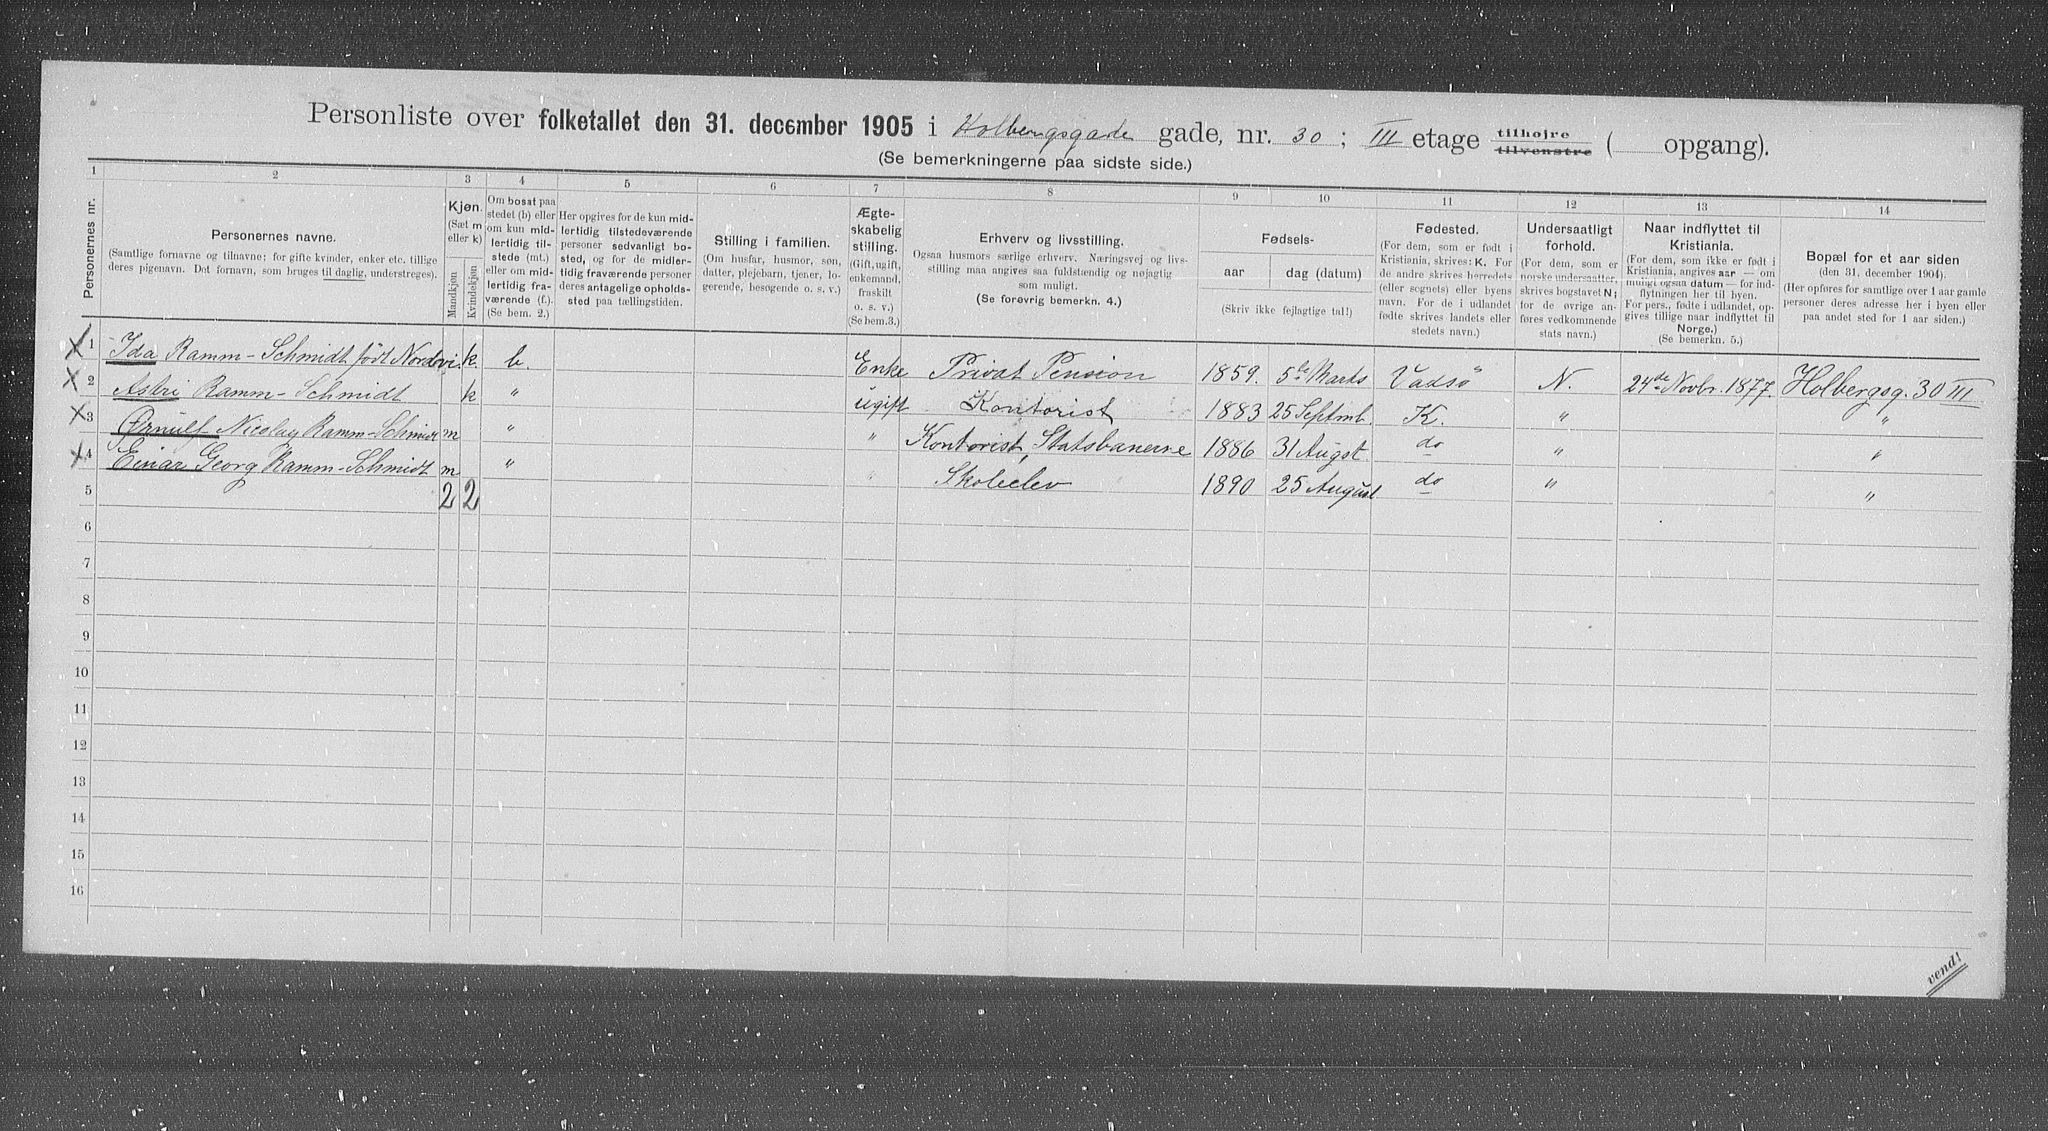 Personliste over folketallet den 31. december 1905 i Holbergsgade gade, nr. 30 ; III etage tilhøjre tilvenstre ( opgang).
(Se bemerkningerne paa sidste side.)
1 2 3 4 5 6 7 8 9 10 11 12 13 14
Personernes nr.
Personernes navne.
(Samtlige fornavne og tilnavne; for gifte kvinder, enker etc. tillige
deres pigenavn. Det fornavn, som bruges til daglig, understreges).
Kjøn.
(Sæt m
eller k)
Mandkjøn
Kvindekjøn
Om bosat paa
stedet (b) eller
om kun mid-
lertidig til-
stede (mt.)
eller om mid-
lertidig fra-
værende (f.).
(Se bem. 2.)
Her opgives for de kun mid-
lertidig tilstedeværende
personer sedvanligt bo-
sted, og for de midler-
tidig fraværende personer
deres antagelige opholds-
sted paa tællingstiden.
Stilling i familien.
(Om husfar, husmor, søn,
datter, plejebarn, tjener, lo-
gerende, besøgende o. s. v.)
Ægte-
skabelig
stilling.
(Gift, ugift,
enkemand,
fraskilt
o. s. v.)
(Se bem.3.)
Erhverv og livsstilling.
Ogsaa husmors særlige erhverv. Næringsvej og livs-
stilling maa angives saa fuldstændig og nøjagtig
som muligt.
(Se forøvrig bemerkn. 4.)
Fødsels-
aar dag (datum)
(Skriv ikke fejlagtige tal!)
Fødested.
(For dem, som er født i
Kristiania, skrives: K. For
de andre skrives herredets
(eller sognets) eller byens
navn. For de i udlandet
fødte skrives landets eller
stedets navn.)
Undersaatligt
forhold.
(For dem, som er
norske undersaatter,
skrives bogstavet N;
for de øvrige an-
føres vedkommende
stats navn.)
Naar indflyttet til
Kristiania.
(For dem, som ikke er født i
Kristiania, angives aar — om
muligt ogsaa datum — for ind-
flytningen her til byen.
For pers., fødte i udlandet, op-
gives tillige naar indflyttet til
Norge.)
(Se bemerkn. 5.)
Bopæl for et aar siden
(den 31. december 1904).
(Her opføres for samtlige over 1 aar gamle
personer deres adresse her i byen eller
paa andet sted for 1 aar siden.)
X 1 Ida Ramm-Schmidt født Nordvi. k. b. Enke Privat Pension 1859. 5te Marts Vadsö N. 24de Novbr. 1877. Holbergsg. 30 III
X 2 Astri Ramm-Schmidt k " ugift Kontorist 1883 25 Septmb. K. " "
X 3 Ørnulf Nicolay Ramm-Schmidt m " " Kontorist, Statsbanerne 1886 31 Augst. do " "
X 4 Einar Georg Ramm-Schmidt m " " Skoleelev 1890 25 August do " "
5 2 2
6
7
8
9
10
11
12
13
14
15
16
vend!